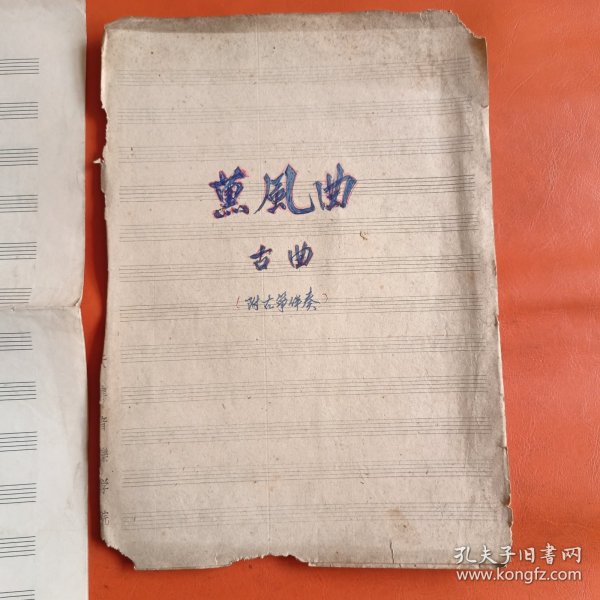 薰風曲
古曲
（附古筝伴奏）
孔夫子旧書网
www.kongfz.com